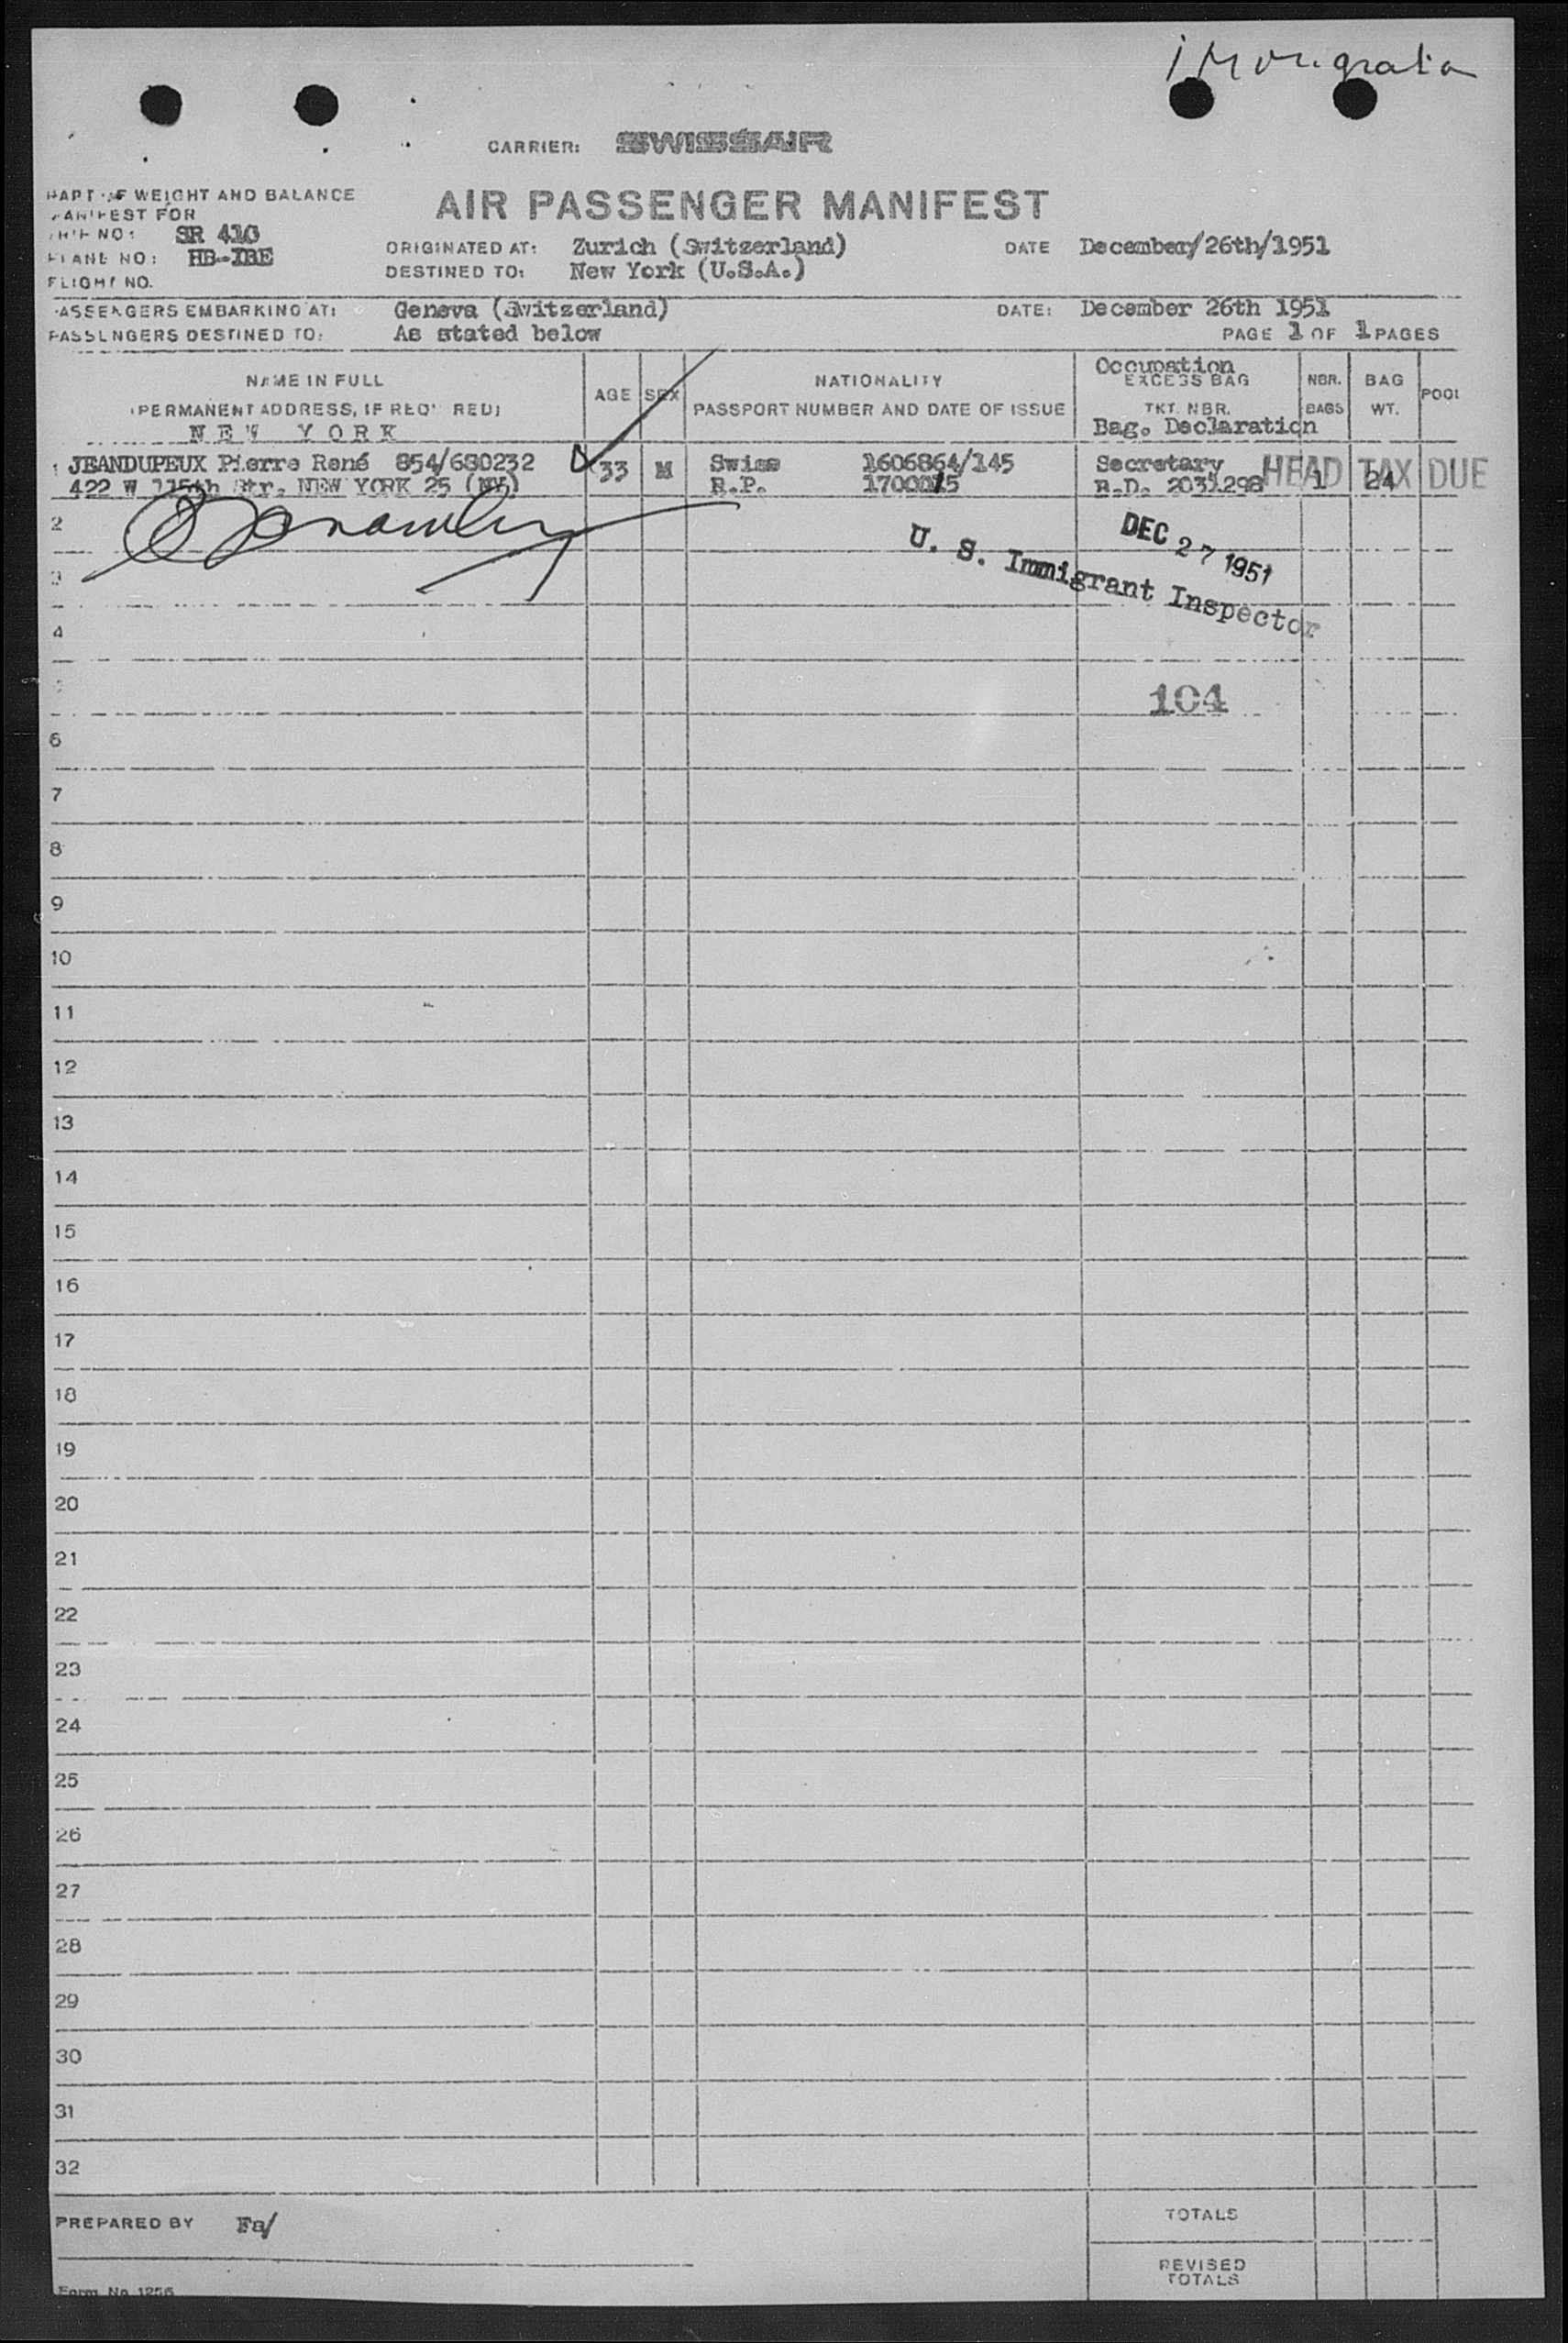 CARRIER: SWISSAIR
PART OF WEIGHT AND BALANCE
MANIFEST FOR
AIR PASSENGER MANIFEST
TRIP NO: SR 410
ORIGINATED AT: Zurich (Switzerland) DATE December/26th/1951
PLANE NO: HB-IBE
DESTINED TO: New York (U.S.A.)
FLIGHT NO.
PASSENGERS EMBARKING AT: Geneva (Switzerland) DATE: December 26th 1951
PASSENGERS DESTINED TO: As stated below PAGE 1 OF 1 PAGES
NAME IN FULL AGE SEX NATIONALITY Occupation EXCESS BAG NBR. BAGS BAG WT. POOL
(PERMANENT ADDRESS, IF REQ' RED) PASSPORT NUMBER AND DATE OF ISSUE TKT. NBR.
NEW YORK Bag. Declaration
1 JEANDUPEUX Pierre René 854/680232 33 M Swiss 1606864/145 Secretary HEAD TAX DUE
422 W 115th Str. NEW YORK 25 (NY) R.P. B.D. 2031298 1 24
2
DEC 27 1951
U. S. Immigrant Inspector
3
4
5
104
6
7
8
9
10
11
12
13
14
15
16
17
18
19
20
21
22
23
24
25
26
27
28
29
30
31
32
PREPARED BY Fa/
TOTALS
REVISED
TOTALS
Form No 1256